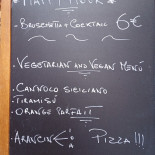 Bruschetta + Cocktail 6€
• Vegetarian and Vegan Menú
• Cannolo Siciliano
• Tiramisù
• Orange Parfait
Arancine Pizza!!!